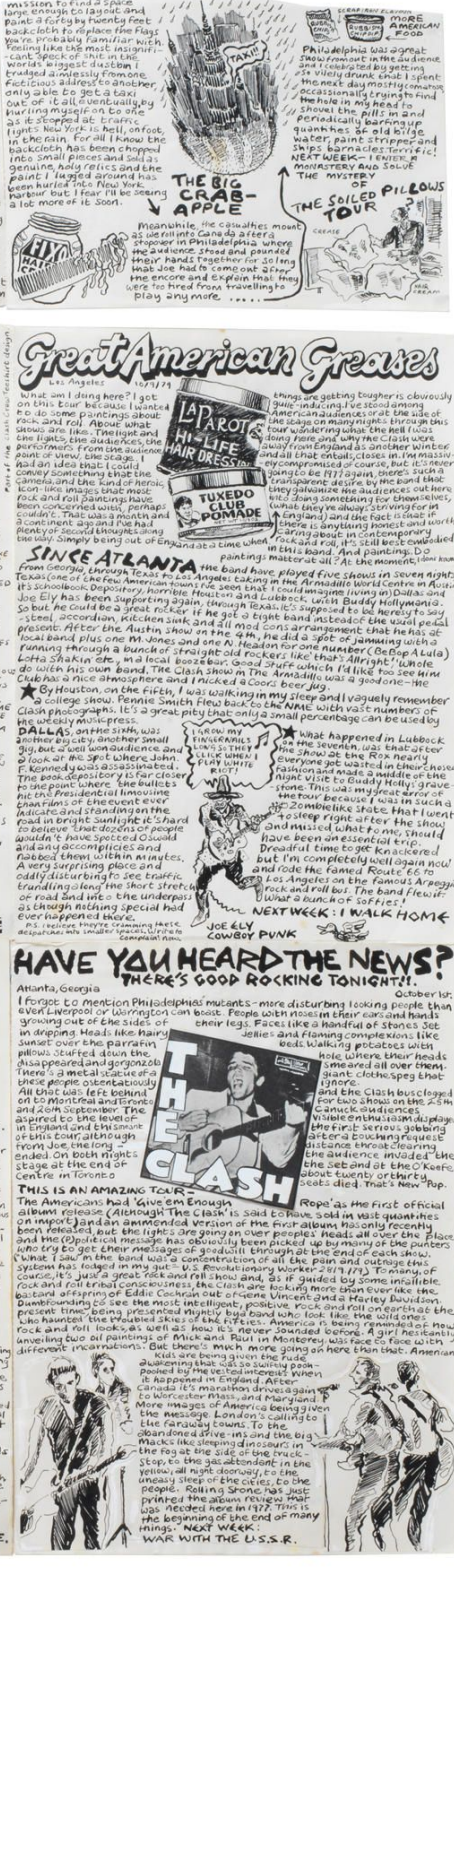 mission to find a space
large enough to layout and
paint a forty by twenty feet
backcloth to replace the flags
you're probably familiar with.
Feeling like the most insignifi-
-cant speck of shit in the
worlds biggest dustbin I
trudged aimlessly from one
ficticious address to another
only able to get a taxi
out of it all, eventually, by
hurling myself on to one
as it stopped at traffic
lights. New York is hell, on foot,
in the rain. For all I know the
backcloth has been chopped
into small pieces and sold as
genuine, holy relics and the
paint I lugged around has
been hurled into New York
harbour but I fear I'll be seeing
a lot more of it soon.
TAXI!!
THE BIG
CRAB-
APPLE
MORE
AMERICAN
FOOD
Philadelphia was a great
show from out in the audience
and I celebrated by getting
so vilely drunk that I spent
the next day mostly comatose
occassionally trying to find
the hole in my head to
shovel the pills in and
periodically barfing up
quantities of old bilge
water, paint stripper and
ships barnacles. Terrific!
NEXT WEEK - I ENTER A
MONASTERY AND SOLVE
THE MYSTERY
OF
THE SOILED PILLOWS
TOUR
GREASE
HAIR
CREAM
Meanwhile, the casualties mount
as we roll into Canada after a
stopover in Philadelphia where
the audience stood and pounded
their hands together for so long
that Joe had to come out after
the encore and explain that they
were too tired from travelling to
play any more ......
FIXO
HAIR
Great American Greases
Los Angeles 10/9/79
What am I doing here? I got
on this tour because I wanted
to do some paintings about
rock and roll. About what
shows are like. The light and
the lights, the audiences, the
performers from the audience
point of view, the stage. I
had an idea that I could
convey something that the
camera, and the kind of heroic,
icon-like images that most
rock and roll paintings have
been concerned with, perhaps
couldn't. That was a month and
a continent ago and I've had
plenty of second thoughts along
the way. Simply being out of England at a time when
LA PAROT
HI-LIFE
HAIR DRESSING
TUXEDO
CLUB
POMADE
things are getting tougher is obviously
guilt-inducing. I've stood among
American audiences or at the side of
the stage on many nights through this
tour wondering what the hell I was
doing here and why the Clash were
away from England as another winter
and all that entails, closes in. I'm massiv-
ely compromised of course, but it's never
going to be 1977 again, there's such a
transparent desire by the band that
they galvanize the audiences out here
into doing something for themselves,
(what they're always striving for in
England) and the fact is that if
there is anything honest and worth
caring about in contemporary
rock and roll, it's still best embodied
in this band. And paintings. Do
paintings matter at all? At the moment, I don't know
SINCE ATLANTA the band have played five shows in seven nights
from Georgia, through Texas to Los Angeles taking in the Armadillo World Centre in Austin
Texas (one of the few American towns I've seen that I could imagine living in) Dallas and
it's schoolbook Depository, horrible Houston and Lubbock, with Buddy Hollymania.
Joe Ely has been supporting again, through Texas, it's supposed to be heresy to say
so but he could be a great rocker if he got a tight band instead of the usual pedal
-steel, accordian, kitchen sink and all mod cons arrangement that he has at
present. After the Austin show on the 4th, he did a spot of jamming with a
local band plus one M. Jones and one N. Headon for one number (Be Bop A Lula)
running through a bunch of straight old rockers like 'that's Allright,' 'Whole
Lotta Shakin' etc., in a local boozebar. Good Stuff which I'd like to see him
do with his own band. The Clash show in The Armadillo was a good one - the
Club has a nice atmosphere and I nicked a Coors beer jug.
★ By Houston, on the fifth, I was walking in my sleep and I vaguely remember
a college show. Pennie Smith flew back to the NME with vast numbers of
Clash photographs. It's a great pity that only a small percentage can be used by
the weekly music press.
DALLAS, on the sixth, was
another big city, another small
gig, but a well won audience and
a look at the spot where John.
F. Kennedy was assassinated.
The book depository is far closer
to the point where the bullets
hit the Presidential limousine
than films of the event ever
indicate and standing on the
road in bright sunlight it's hard
to believe that dozens of people
wouldn't have spotted Oswald
and any accomplices and
nabbed them within minutes.
A very surprising place and
oddly disturbing to see traffic
trundling along the short stretch
of road and into the underpass
as though nothing special had
ever happened there.
P.S. I believe they're cramming these
despatches into smaller spaces. Write to
complaint now
I GROW MY
FINGERNAILS
LONG SO THEY
CLICK WHEN I
PLAY WHITE
RIOT!
JOE ELY
COWBOY PUNK
★ What happened in Lubbock
on the seventh, was that after
the show at the Rox nearly
everyone got wasted in their chosen
fashion and made a middle of the
night visit to Buddy Holly's grave
-stone. This was my great error of
the tour because I was in such a
zombie like state that I went
to sleep right after the show
and missed what to me, should
have been an essential trip.
Dreadful time to get knackered
but I'm completely well again now
and rode the famed Route 66 to
Los Angeles on the famous Arpeggio
rock and roll bus. The band flew it.
What a bunch of softies!
NEXT WEEK: I WALK HOME
HAVE YOU HEARD THE NEWS?
THERE'S GOOD ROCKING TONIGHT!!.
Atlanta, Georgia October 1st.
I forgot to mention Philadelphias mutants - more disturbing looking people than
even Liverpool or Warrington can boast. People with noses in their ears and hands
growing out of the sides of their legs. Faces like a handful of stones set
in dripping. Heads like hairy jellies and flaming complexions like
sunset over the parrafin beds. Walking potatoes with
pillows stuffed down the hole where their heads
disappeared and gorgonzola smeared all over them.
There's a metal statue of a giant clothes peg that
these people ostentatiously ignore.
All that was left behind and the Clash bus clogged
on to Montreal and Toronto for two shows on the 25th
and 26th September. The Canuck audiences
aspired to the level of visible enthusiasm displayed
in England and this meant the first serious gobbing
of this tour, although after a touching request
from Joe, the long - distance throat clearing
ended. On both nights the audience invaded the
stage at the end of the set and at the O'Keefe
Centre in Toronto about twenty or thirty
seats died. That's New Pop.
THE
CLASH
THIS IS AN AMAZING TOUR -
The Americans had 'Give 'em Enough Rope' as the first official
album release (Although 'The Clash' is said to have sold in vast quantities
on import) and an ammended version of the first album has only recently
been released, but the lights are going on over people's heads all over the place
and the (P)political message has obviously been picked up by many of the punters
who try to get their messages of goodwill through at the end of each show.
("What I saw in the band was a concentration of all the pain and outrage this
system has lodged in my gut" - U.S. Revolutionary Worker 28/9/79) To many, of
course, it's just a great rock and roll show and, as if guided by some infallible
rock and roll tribal consciousness, the Clash are looking more than ever like the
bastard offspring of Eddie Cochran out of Gene Vincent and a Harley Davidson.
Dumbfounding to see the most intelligent, positive rock and roll on earth at the
present time, being presented nightly by a band who look like the wild ones
who haunted the troubled skies of the fifties. America is being reminded of how
rock and roll looks, as well as how it's never sounded before. A girl hesitantly
unveiling two oil paintings of Mick and Paul in Monterey, was face to face with
different incarnations. But there's much more going on here than that. American
Kids are being given the rude
awakening that was so swiftly pooh-
poohed by the vested interests when
it happened in England. After
Canada it's marathon drives again
to Worcester Mass, and Maryland.
More images of America being given
the message. London's calling to
the faraway towns. To the
abandoned drive-ins and the big
Macks like sleeping dinosaurs in
the fog at the side of the truck-
stop, to the gas attendant in the
yellow, all night doorway, to the
uneasy sleep of the cities, to the
people. Rolling Stone has just
printed the album review that
was needed here in 1977. This is
the beginning of the end of many
things. NEXT WEEK:
WAR WITH THE U.S.S.R.